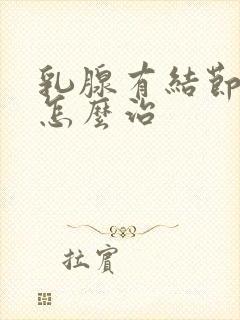 乳腺有結節
怎麼治
拉賓